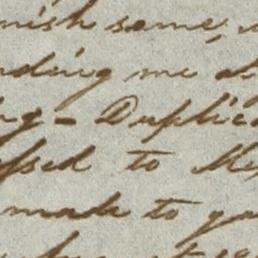 nish some,
nding me
ng - Duplic
ssed to Me
made to yo